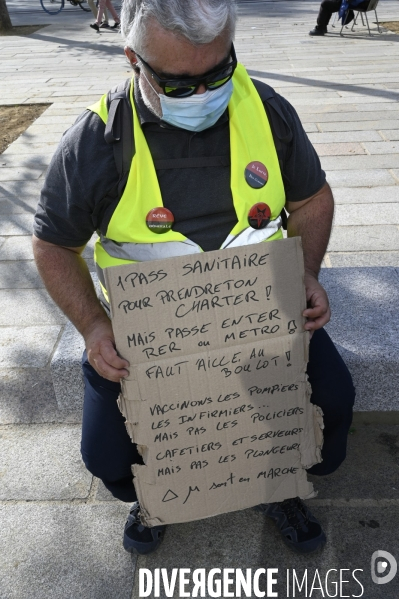 1 PASS SANITAIRE
POUR PRENDRE TON
CHARTER !
MAIS PASSE ENTER
RER OU METRO
FAUT ALLE AU
BOULOT !
VACCINONS LES POMPIERS
LES INFIRMIERS...
MAIS PAS LES POLICIERS
CAFETIERS ET SERVEURS
MAIS PAS LES PLONGEURS
SONT EN MARCHE
DIVERGENCE IMAGES